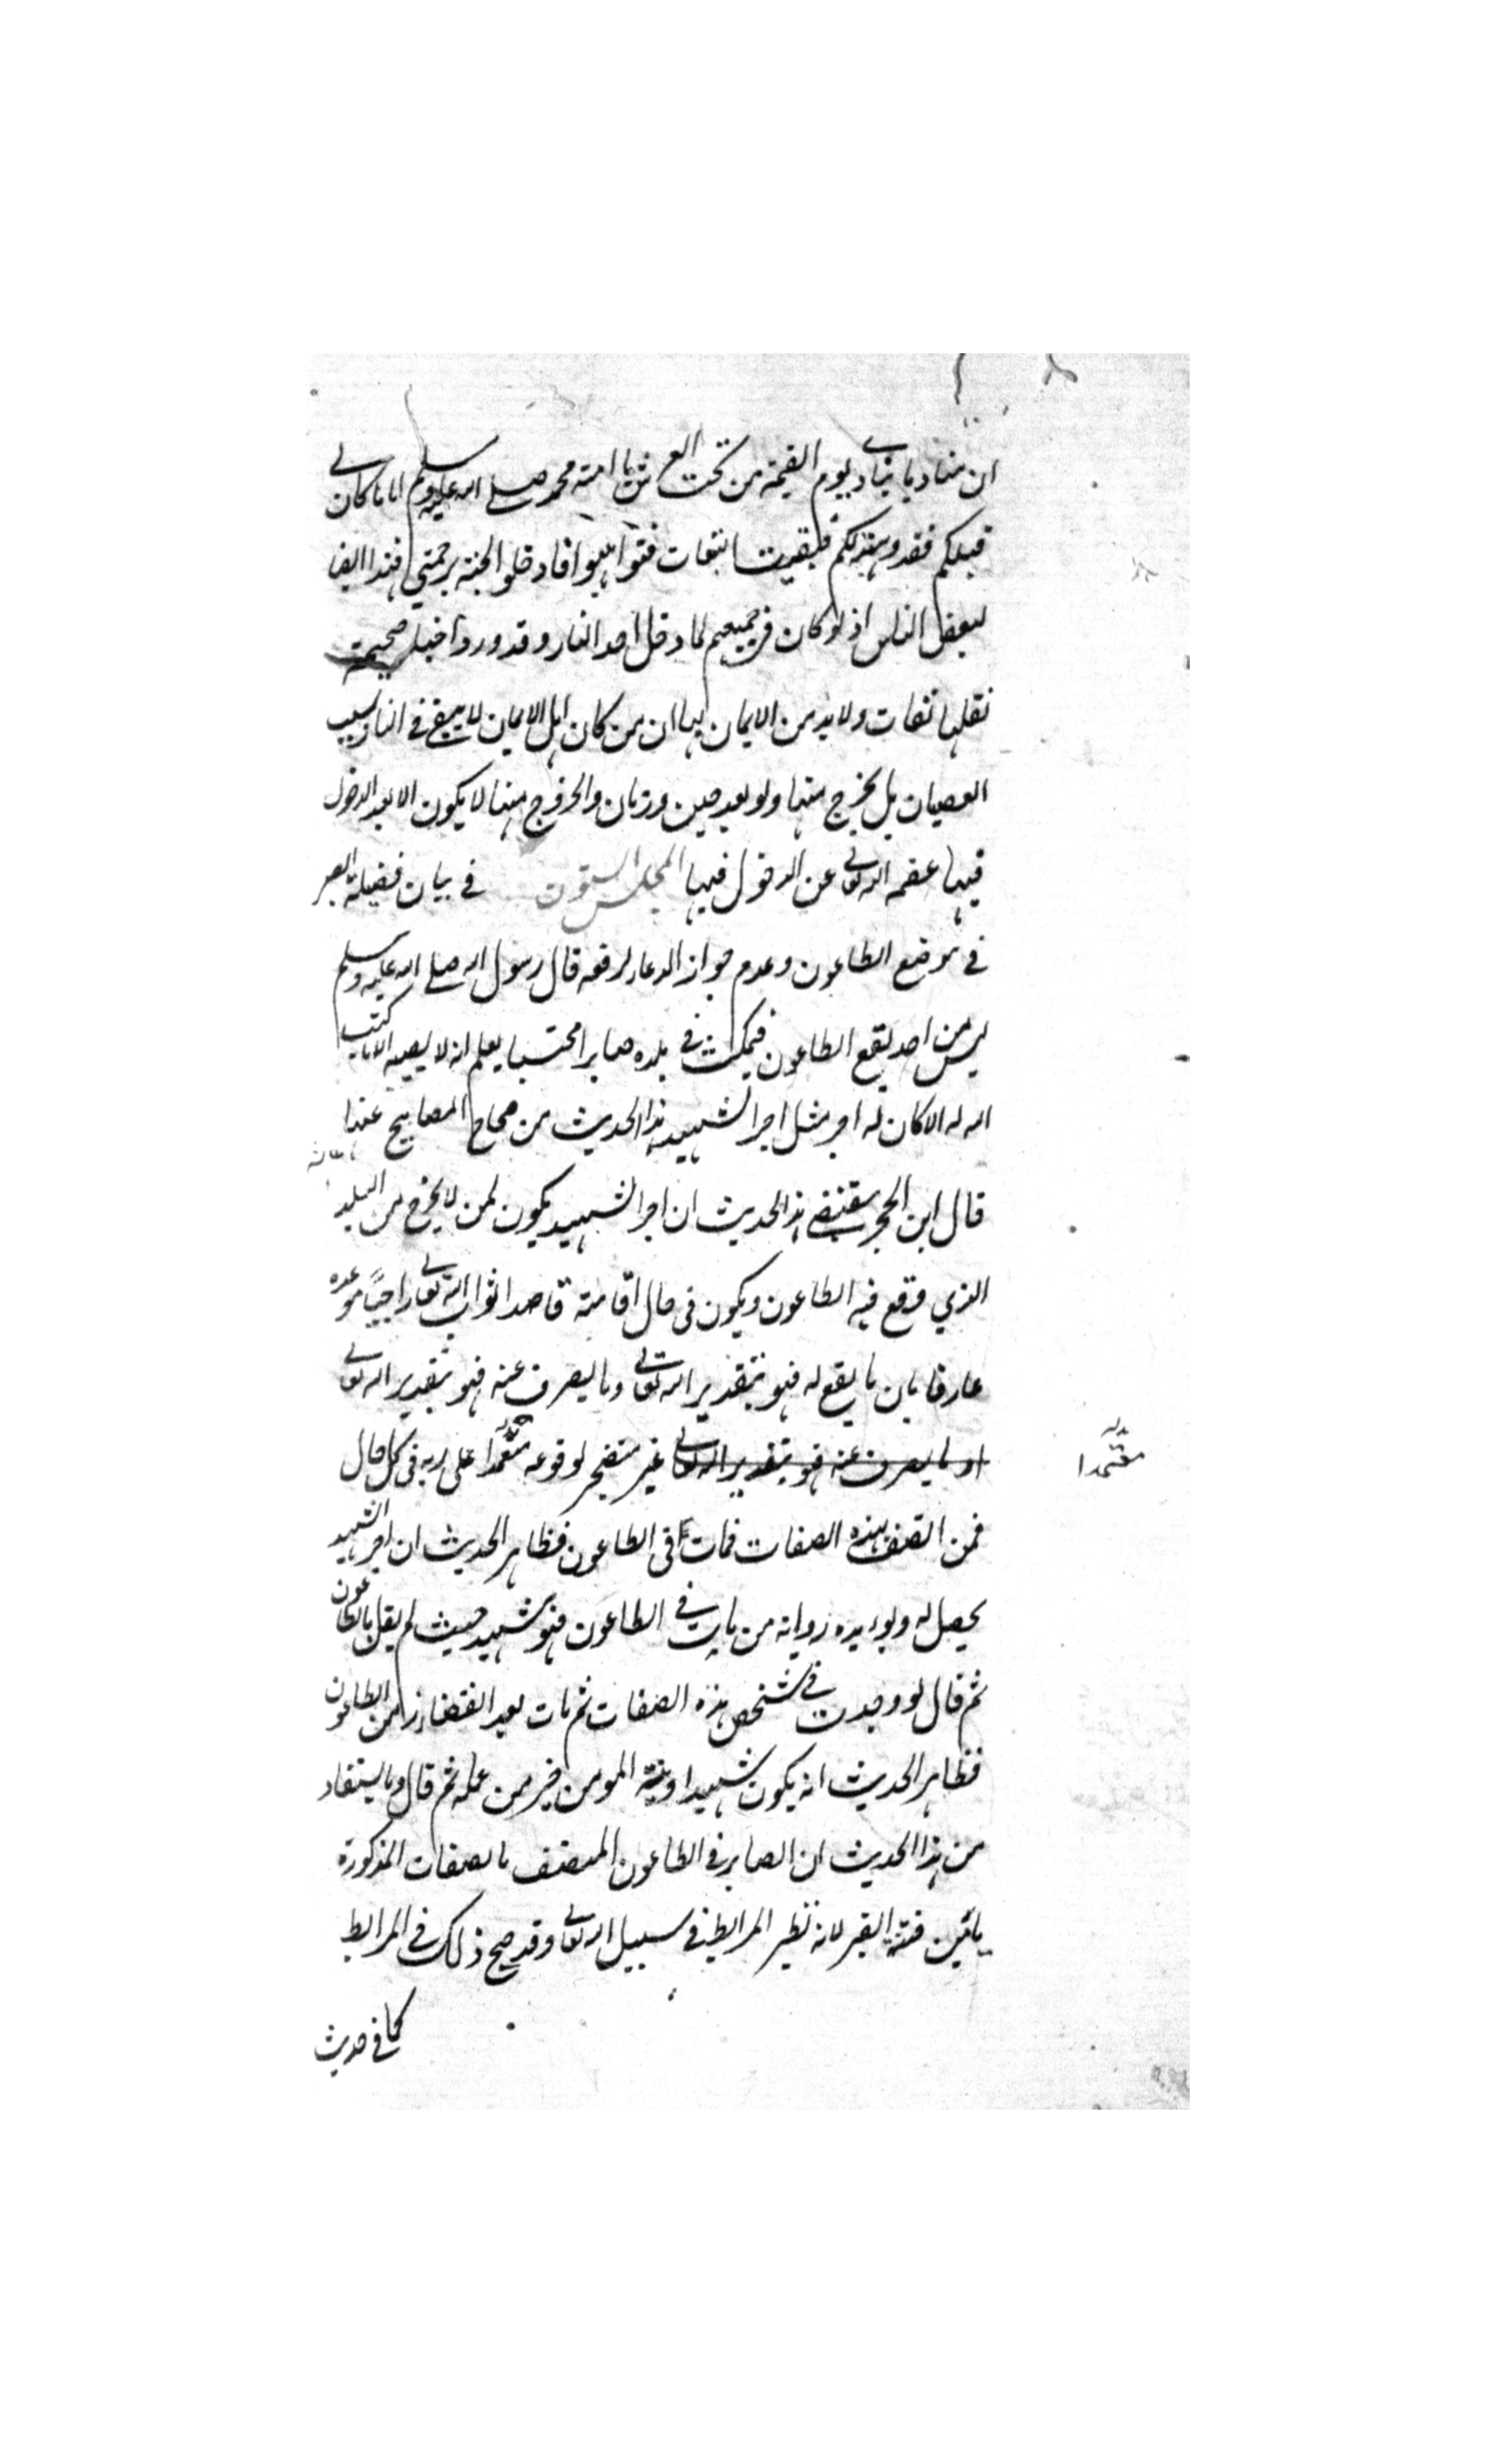 ان مناديا ينادي يوم القيمة من تحت العرش يا امة محمد صلى الله عليه وسلم اما ما كان لي
قبلكم فقد وهبته لكم فبقيت التبعات فتواهبوا فادخلوا الجنة برحمتي فهذا ايضا
لبعض الناس اذ لو كان في جميعهم لما دخل احد النار وقد ورد اخبار صحيحة
نقلها ثقات ولا بد من الايمان بها ان من كان اهل الايمان لا يبقى في النار بسبب
العصيان بل يخرج منها ولو بعد حين وزمان والخروج منها لا يكون الا بعد الدخول
فيها عصمه الله تعالى عن الدخول فيها المجلس الستون في بيان فضيلة الصبر
في موضع الطاعون وعدم جواز الدعاء لرفعه قال رسول الله صلى الله عليه وسلم
ليس من احد يقع الطاعون فيمكث في بلده صابرا محتسبا يعلم انه لا يصيبه الا ما كتب
الله له الا كان له اجر مثل اجر الشهيد هذا الحديث من صحاح المصابيح
قال ابن الحجر يقتضي هذا الحديث ان اجر الشهيد يكون لمن لا يخرج من البلد
الذي وقع فيه الطاعون ويكون في حال اقامته قاصدا ثواب الله تعالى راجيا موعده
عارفا بان ما يقع له فهو بتقدير الله تعالى وما يصرف عنه فهو بتقدير الله تعالى
او ما يصرف عنه فهو بتقدير الله تعالى غير متضجر لوقوعه معتمدا على ربه في كل حال
معتمدا
فمن اتصف بهذه الصفات فمات في الطاعون فظاهر الحديث ان اجر الشهيد
يحصل له ويؤيده رواية من مات في الطاعون فهو شهيد حيث لم يقل بالطاعون
ثم قال لو وجدت في شخص هذه الصفات ثم مات بعد انقضاء زمن الطاعون
فظاهر الحديث انه يكون شهيدا ونية المومن خير من عمله ثم قال ومما يستفاد
من هذا الحديث ان الصابر في الطاعون المتصف بالصفات المذكورة
يامن فتنة القبر لانه نظير المرابط في سبيل الله تعالى وقد صح ذلك في المرابط
كما في حديث